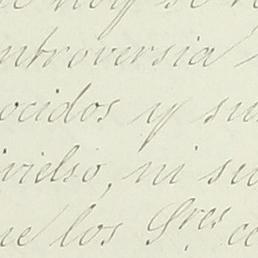 hoy se
ntroversia
ocidos y su
ivielso, ni su
ue los Sres. ce